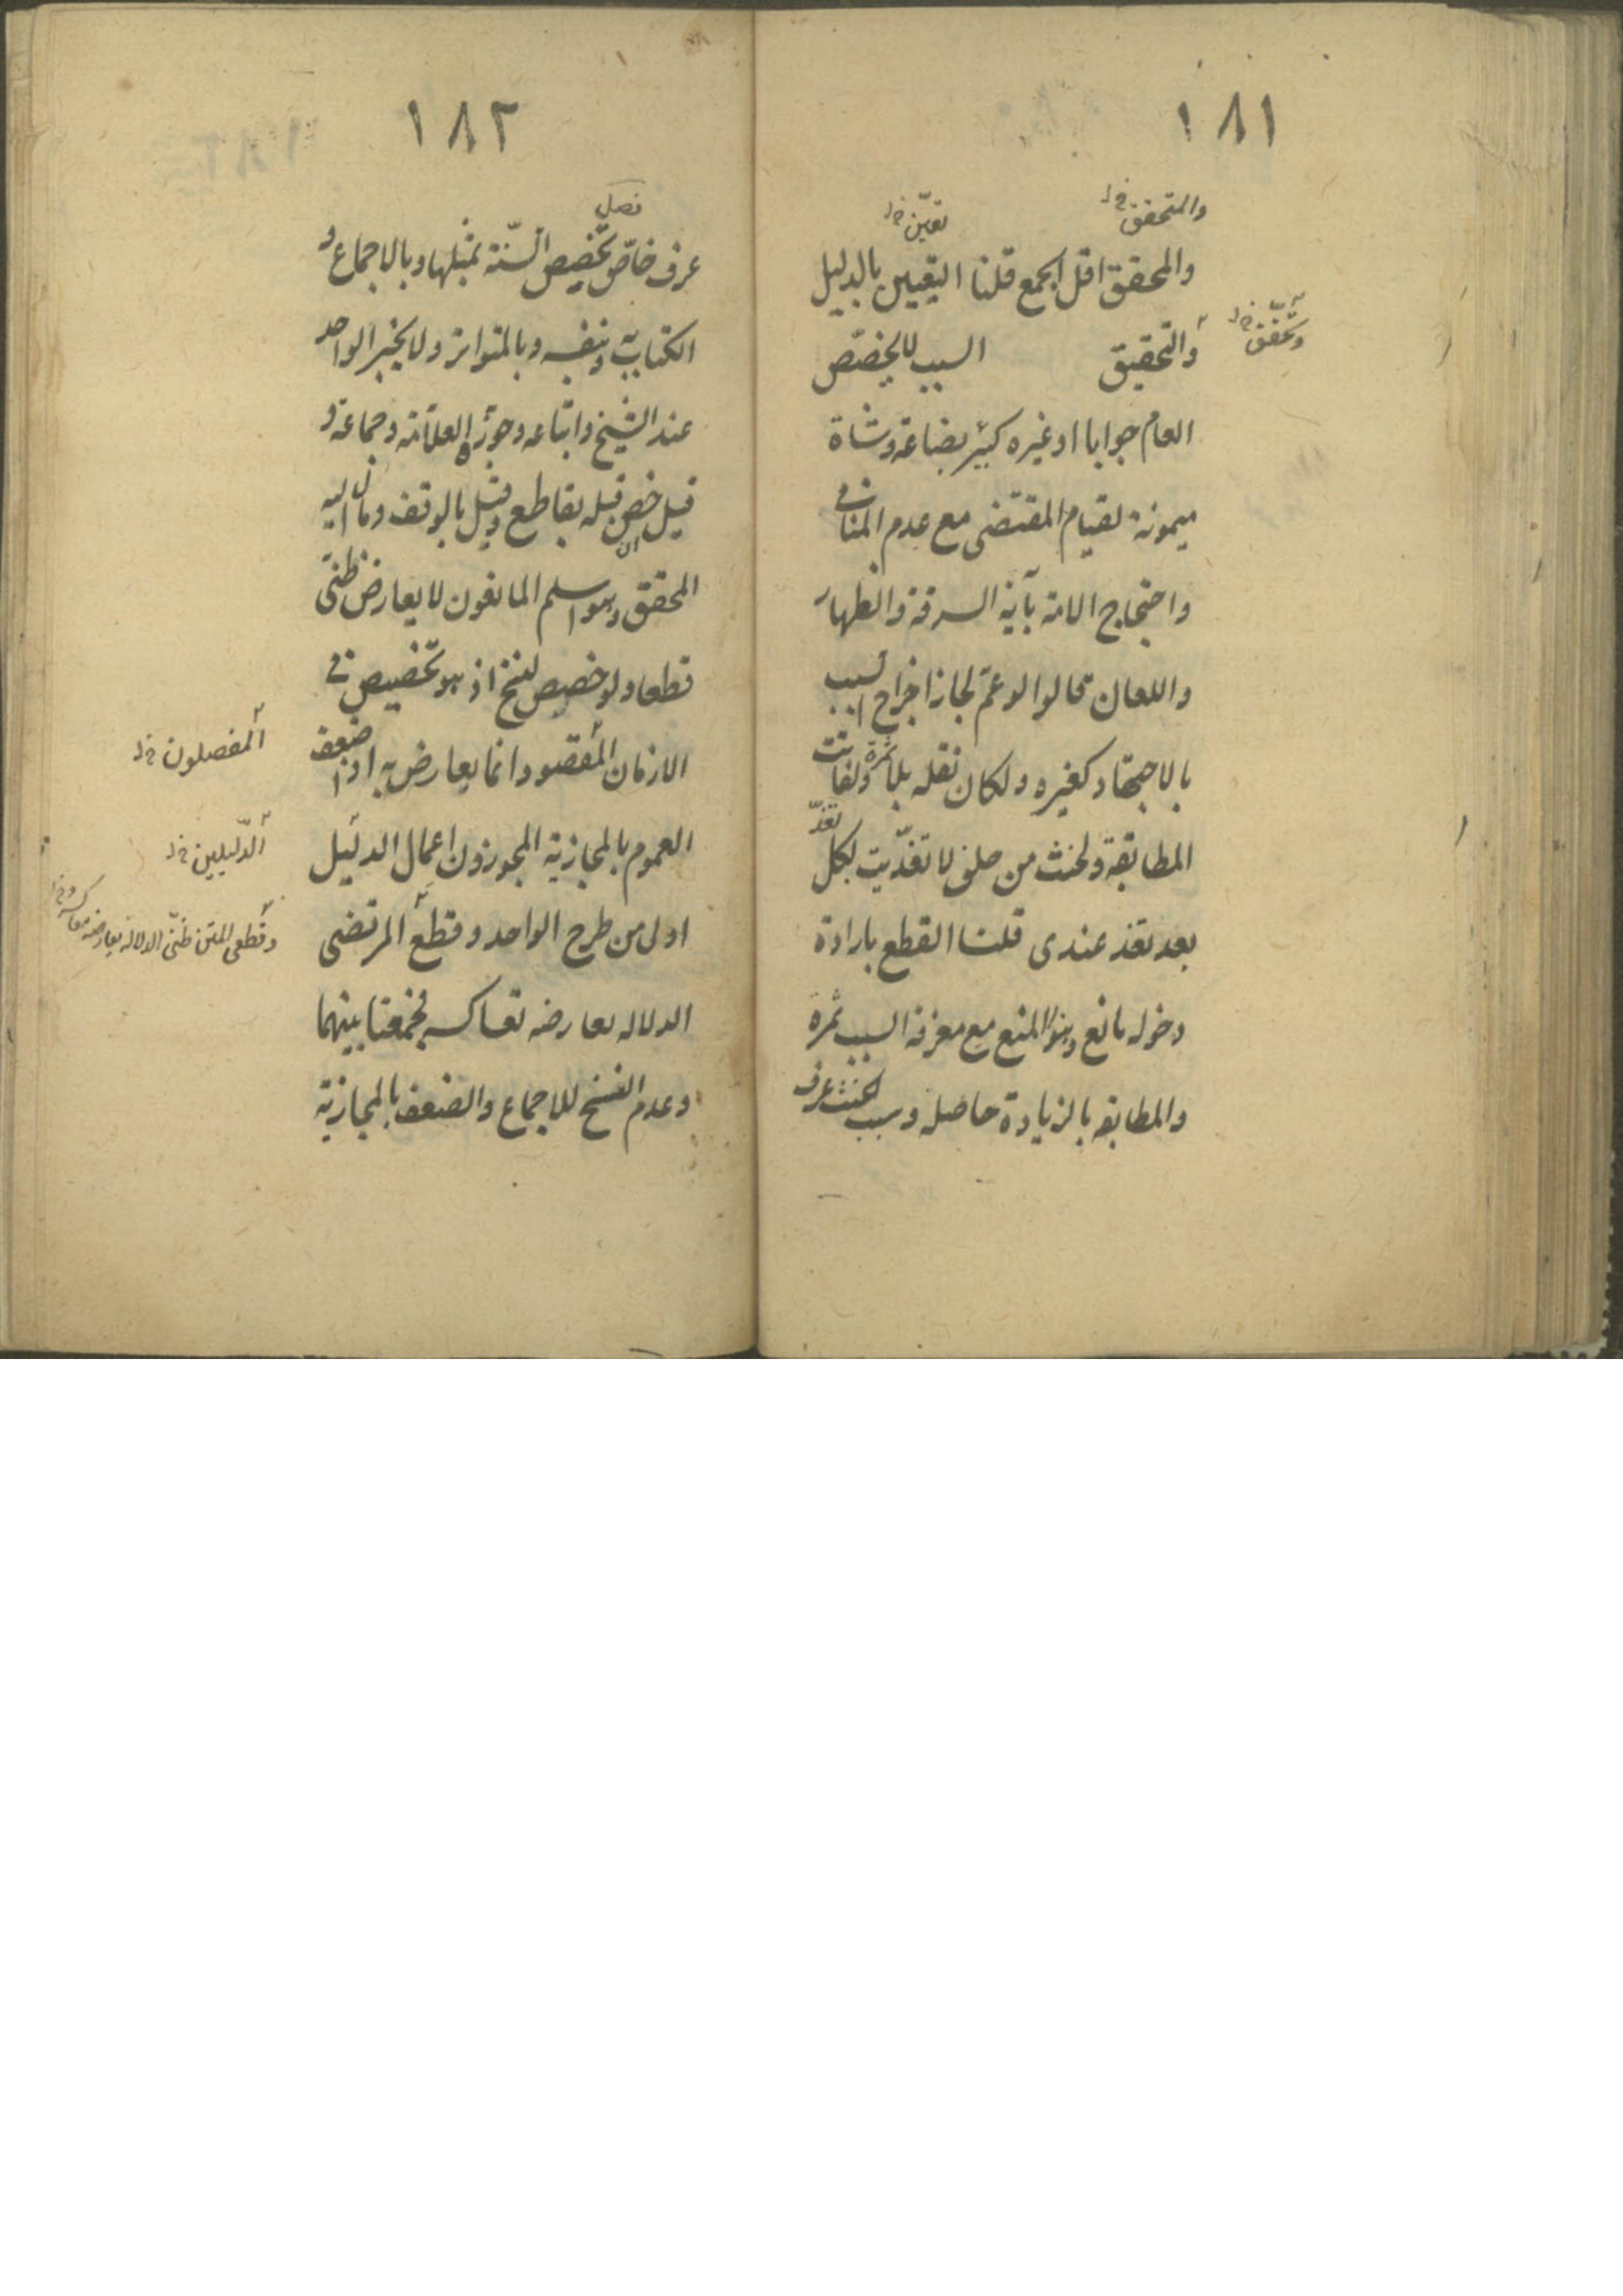 ١٨١
والمتحقق خ ل
تعيّن خ ل
والمحقق اقل الجمع قلنا اليقين بالدليل
وتحقق خ ل
والتحقيق السبب لا يخصّص
العام جوابا او غيره كبئر بضاعة وشاة
ميمونة لقيام المقتضى مع عدم المنافى
واحتجاج الامة بآية السرقة والظهار
واللعان قالوا لو عمّ لجاز اخراج السبب
بالاجتهاد كغيره ولكان نقله بلا ثمرة ولفاتت
المطابقة ولحنث من حلف لا تغدّيت لكل تغدّ
بعد تغد عندى قلنا القطع بارادة
دخوله مانع وهو المنع مع معرفة السبب ثمرة
والمطابقه بالزيادة حاصله وسبب الحنث عرف
١٨٢
فصل
عرف خاصّ تخصيص السّنة بمثلها وبالاجماع و
الكتاب به وبنفسه وبالمتواتر ولا بخبر الواحد
عند الشيخ واتباعه وجوّزه العلامة وجماعة و
قيل ان خص قبله بقاطع وقيل بالوقف ومال اليه
المحقق وهو اسلم المانعون لا يعارض ظنى
قطعا ولو خصص لنسخ اذ هو تخصيص فى
المفصلون خ ل
الازمان المقصود انما يعارض به اذا ضعف
الدّليلين خ ل
العموم بالمجازية المجوزون اعمال الدليل
وقطعى المتن ظنّى الدلالة يعارضه معاكسه خ ل
اولى من طرح الواحد وقطع المرتضى
الدلاله يعارضه تعاكسه فجمعنا بينهما
وعدم النسخ للاجماع والضعف بالمجازية